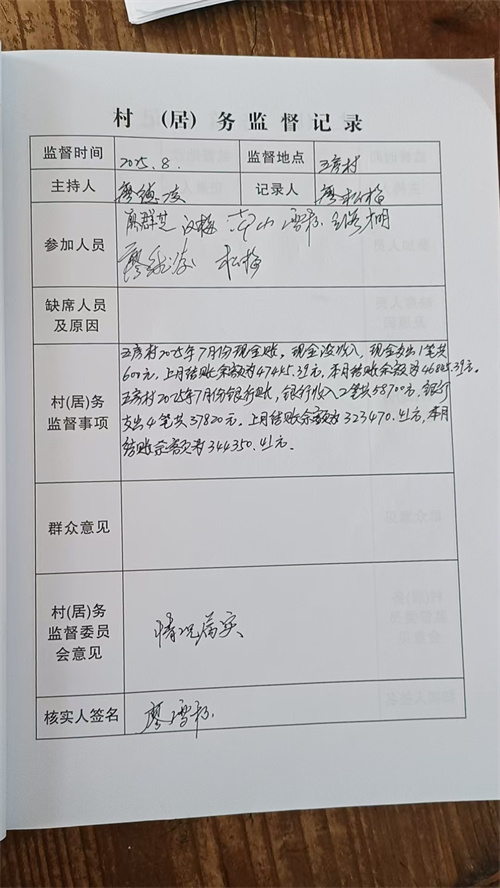 村 (居) 务监督记录
监督时间 2025.8. 监督地点 五房村
主持人 廖 记录人 廖松梅
参加人员
松梅
缺席人员
及原因
村(居)务
监督事项
五房村2025年7月份现金账。现金没收入，现金支出1笔共
600元，上月结账余额为47445.39元，本月结账余额为46845.39元。
五房村2025年7月份银行账，银行收入2笔共58700元，银行
支出4笔共37820元。上月结账余额为323470.41元，本月
结账余额为344350.41元。
群众意见
村(居)务
监督委员
会意见
情况属实
核实人签名 廖雪